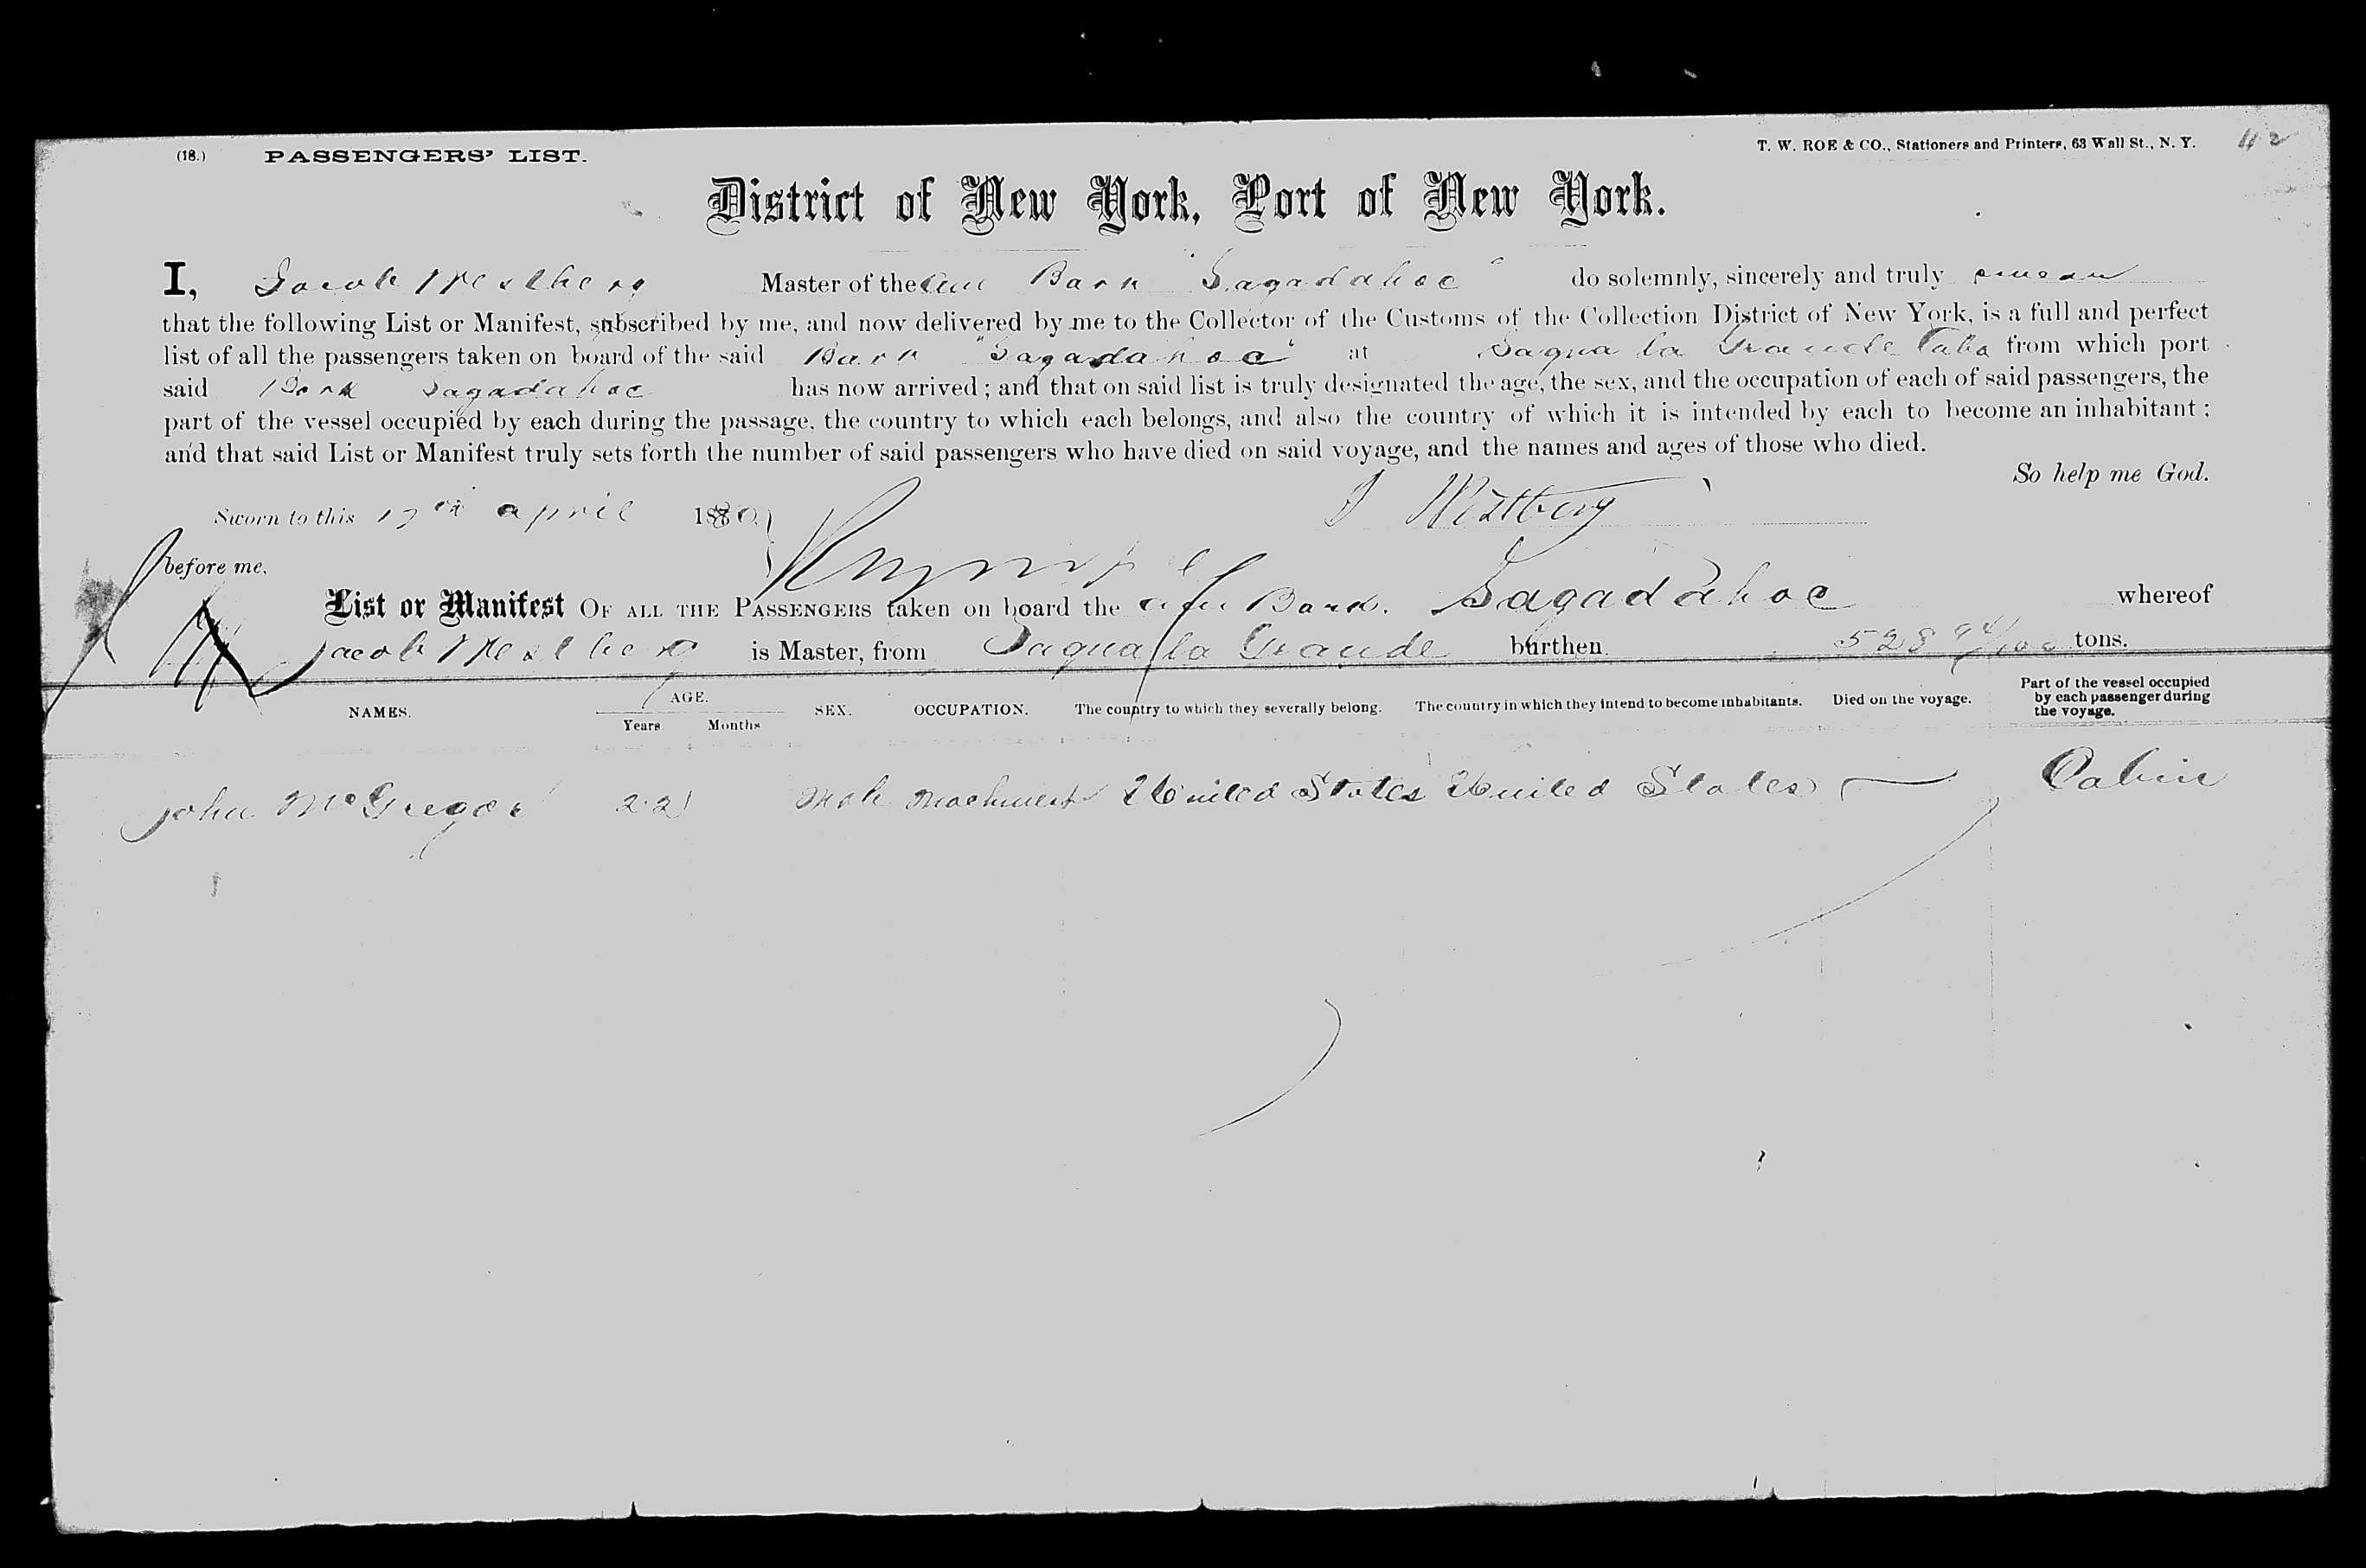 (18.) PASSENGERS' LIST. T. W. ROE & CO., Stationers and Printers, 63 Wall St., N. Y. 42
District of New York, Port of New York.
I, Jacob Westberg Master of the Am Bark "Sagadahoc" do solemnly, sincerely and truly swear
that the following List or Manifest, subscribed by me, and now delivered by me to the Collector of the Customs of the Collection District of New York, is a full and perfect
list of all the passengers taken on board of the said Bark "Sagadahoc" at Sagua la Grande Cuba from which port
said Bark Sagadahoc has now arrived; and that on said list is truly designated the age, the sex, and the occupation of each of said passengers, the
part of the vessel occupied by each during the passage, the country to which each belongs, and also the country of which it is intended by each to become an inhabitant;
and that said List or Manifest truly sets forth the number of said passengers who have died on said voyage, and the names and ages of those who died.
So help me God.
Sworn to this 17th april 1880. J Westberg
before me.
List or Manifest OF ALL THE PASSENGERS taken on board the am Bark. Sagadahoc whereof
Jacob Westberg is Master, from Sagua la Grande burthen 528 94/100 tons.
NAMES. AGE. Years Months SEX. OCCUPATION. The country to which they severally belong. The country in which they intend to become inhabitants. Died on the voyage. Part of the vessel occupied by each passenger during the voyage.
John McGregor 22 Male Machinest United States United States — Cabin